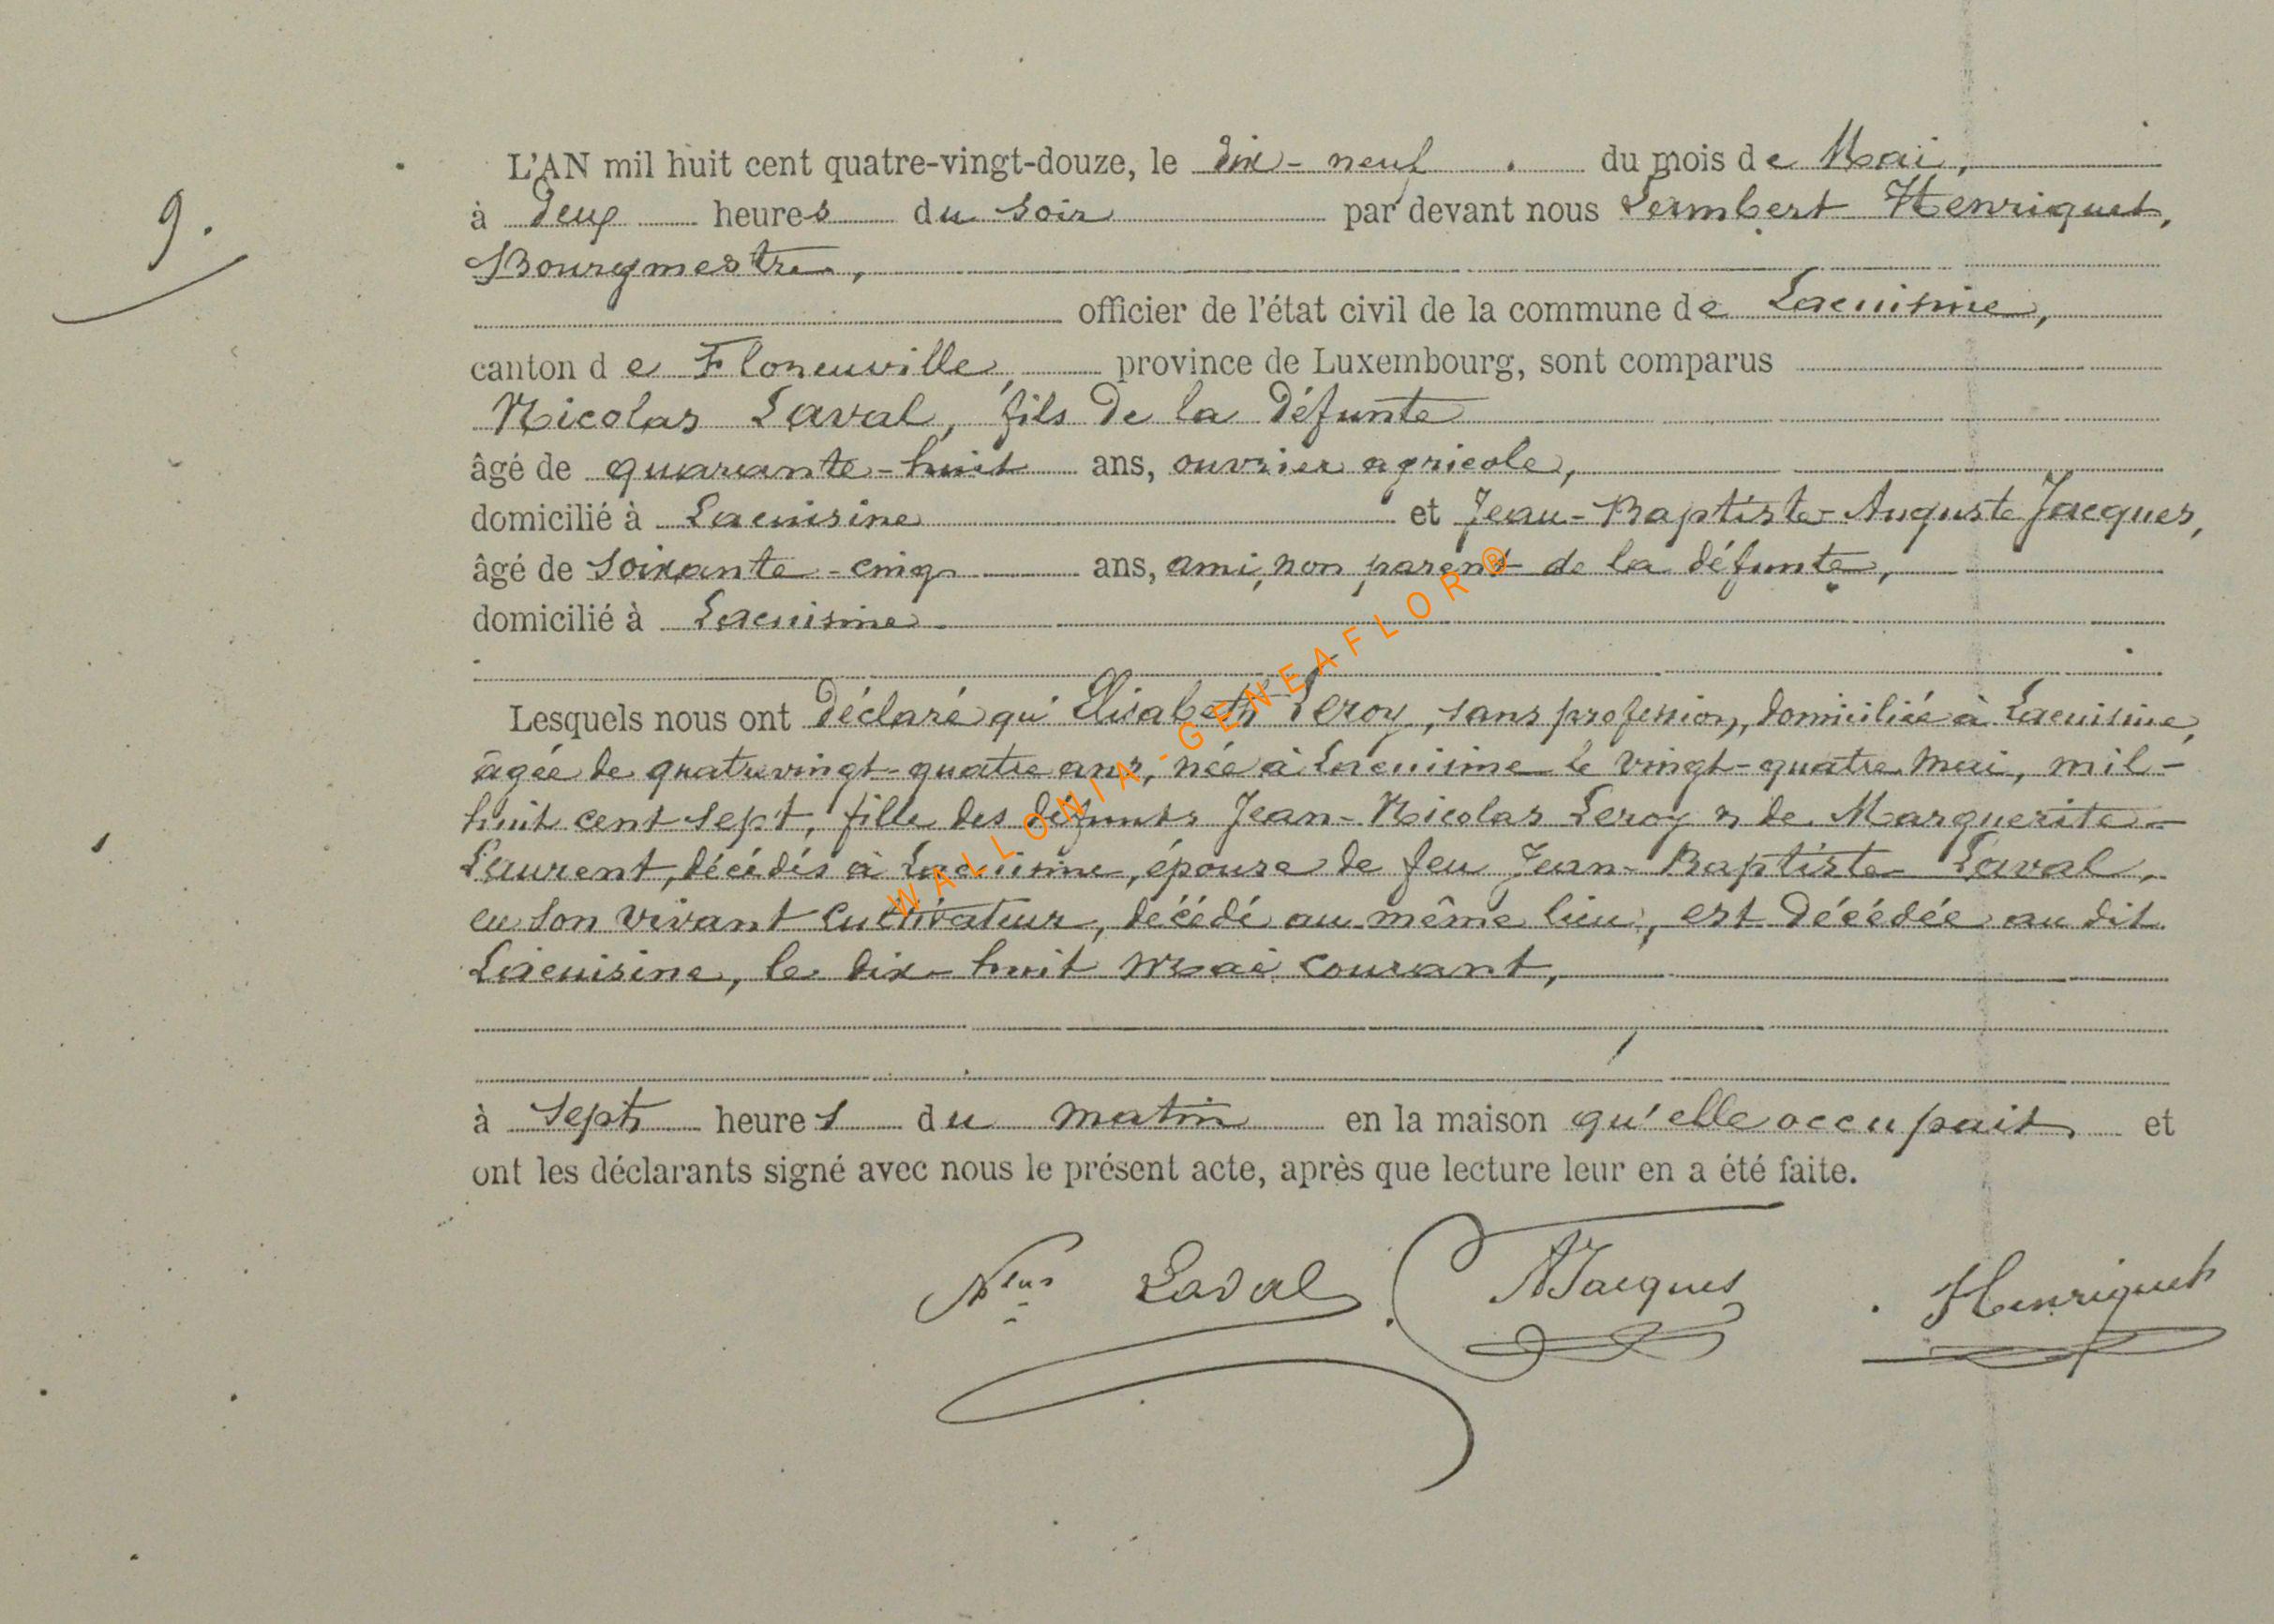 9.
L'AN mil huit cent quatre-vingt-douze, le dix-neuf du mois de Mai,
à deux heures du soir par devant nous Lambert Henriquet,
Bourgmestre,
officier de l'état civil de la commune de Lacuisine,
canton de Florenville, province de Luxembourg, sont comparus
Nicolas Laval, fils de la défunte
âgé de quarante-huit ans, ouvrier agricole,
domicilié à Lacuisine et Jean-Baptiste-Auguste Jacques,
âgé de soixante-cinq ans, ami, non parent de la défunte,
domicilié à Lacuisine.
Lesquels nous ont déclaré qu'Elisabeth Leroy, sans profession, domiciliée à Lacuisine,
âgée de quatrevingt-quatre ans, née à Lacuisine le vingt-quatre mai, mil-
huit cent sept, fille des défunts Jean-Nicolas Leroy & de Marguerite
Laurent, décédés à Lacuisine, épouse de feu Jean-Baptiste Laval,
en son vivant cultivateur, décédé au même lieu, est décédée au dit
Lacuisine, le dix-huit mai courant,
à sept heures du matin en la maison qu'elle occupait et
ont les déclarants signé avec nous le présent acte, après que lecture leur en a été faite.
Nlas Laval AJacques Henriquet
WALLONIA-GENEAFLOR®